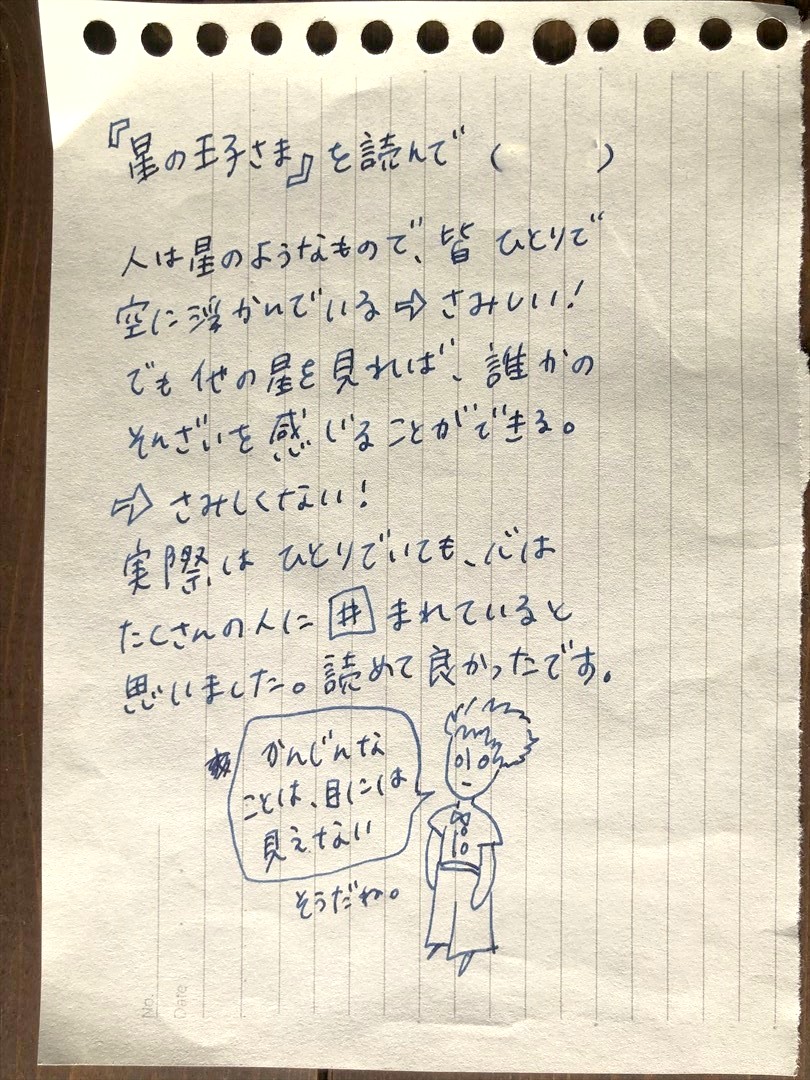 『星の王子さま』を読んで（　　　）
人は星のようなもので、皆 ひとりで
空に浮かんでいる⇨さみしい！
でも他の星を見れば、誰かの
そんざいを感じることができる。
⇨さみしくない！
実際は ひとりでいても、心は
たくさんの人に囲まれていると
思いました。読めて良かったです。
かんじんな
ことは、目には
見えない
そうだね。
No.
Date